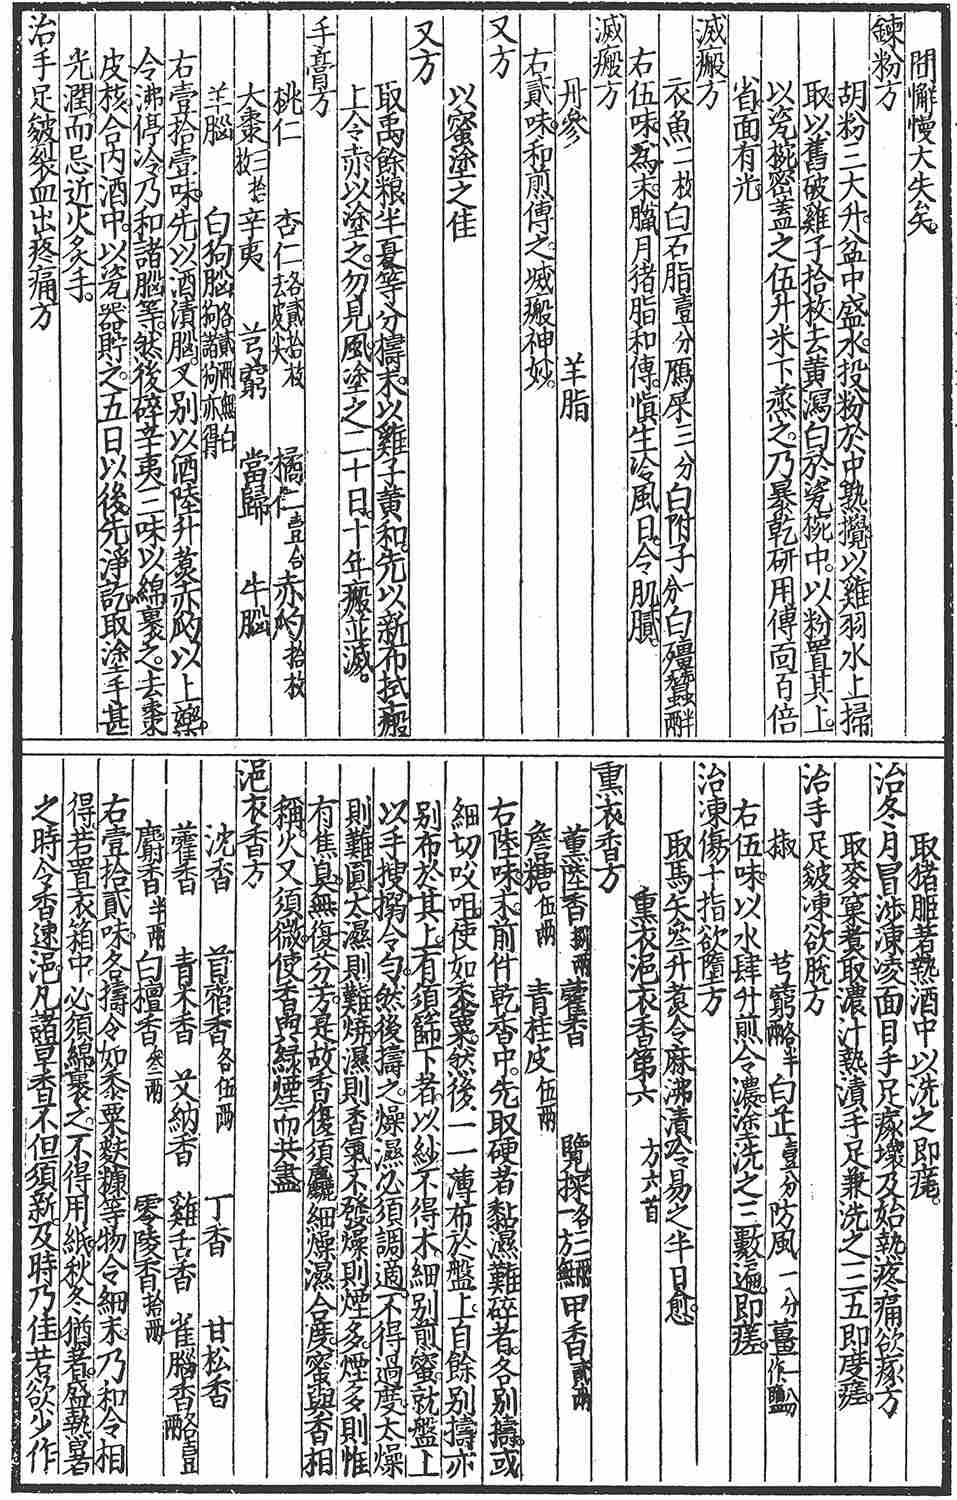 閉懈慢大失矣。
鍊粉方
胡粉三大升。盆中盛水。投粉於中熟攪。以雞羽水上掃
取以舊破雞子拾枚。去黄瀉白於瓷椀中。以粉置其上。
以瓷椀密蓋之。伍升米下蒸之。乃暴乾研用傅面百倍
省。面有光
滅瘢方
衣魚二枚白石脂壹分鴈屎三分白附子一分白殭蠶半兩
右伍味。為末。臘月猪脂和傅。慎生冷風日。令肌膩。
滅瘢方
丹參　羊脂
右貳味。和煎傅之。滅瘢神妙。
又方
以蜜塗之佳
又方
取禹餘粮半夏等分擣末。以雞子黄和。先以新布拭瘢
上令赤。以塗之。勿見風。塗之二十日。十年瘢並滅。
手膏方
桃仁　杏仁各貳拾枚去皮尖　橘仁壹合　赤㔟拾枚
大棗三拾枚　辛夷　芎藭　當歸　牛腦
羊腦　白狗腦各貳兩無白狗諸狗亦得
右壹拾壹味。先以酒漬腦。又別以酒陸升煑赤㔟以上藥。
令沸停冷。乃和諸腦等。然後碎辛夷三味以綿裹之。去棗
皮核合内酒中。以瓷器貯之。五日以後。先淨訖。取塗手甚
光潤。而忌近火炙手。
治手足皴裂血出疼痛方
取猪胵著熱酒中以洗之即瘥。
治冬月冒涉凍凌面目手足瘃壞及始熱疼痛欲瘃方
取麥窠煑取濃汁熱漬手足兼洗之。三五即度瘥。
治手足皴凍欲脫方
椒　芎藭各半兩　白芷壹分　防風一分　薑一分作鹽
右伍味。以水肆升煎令濃。塗洗之。三數遍即瘥。
治凍傷十指欲墮方
取馬矢叁升煑令麻沸漬冷易之半日愈
熏衣浥衣香第六　方六首
熏衣香方
薰陸香捌兩　藿香　覽探各三兩一方無　甲香貳兩
詹糖伍兩　青桂皮伍兩
右陸味。末前件乾香中。先取硬者黏濕難碎者。各別擣。或
細切㕮咀。使如黍粟。然後一一薄布於盤上。自餘別擣亦
別布於其上。有須篩下者。以紗不得木細別煎蜜。就盤上
以手搜搦令勻。然後擣之。燥濕必須調適。不得過度。太燥
則難圓。太濕則難燒。濕則香氣不發。燥則煙多。煙多則惟
有焦臭。無復芬芳。是故香復須麤細燥濕合度。蜜與香相
稱。火又須微。使香與綠煙而共盡。
浥衣香方
沈香　苜蓿香各伍兩　丁香　甘松香
藿香　青木香　艾納香　雞舌香　雀腦香各壹兩
麝香半兩　白檀香叁兩　零陵香拾兩
右壹拾貳味。各擣令如黍粟麩糠等物令細末。乃和令相
得。若置衣箱中。必須綿裹之。不得用紙。秋冬猶著。盛熱暑
之時令香速浥。凡諸草香不但須新。及時乃佳。若欲少作